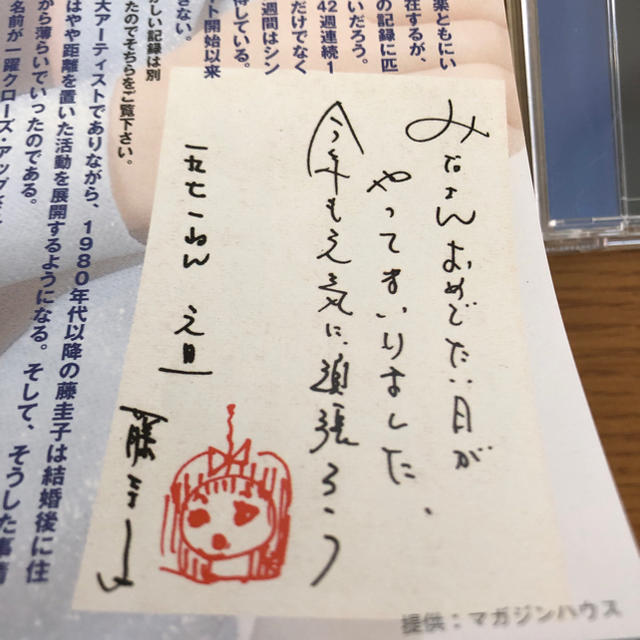 楽ともにい
の記録に匹
在するが、
いだろう。
42週連続1
だけでなく
週間はシン
持している。
ート開始以来
きない。
しい記録は別
たのでそちらをご覧下さい。
大アーティストでありながら、1980年代以降の藤圭子は結婚後に住
はやや距離を置いた活動を展開するようになる。そして、そうした事情
から薄らいでいったのである。
名前が一躍クローズ・アップ
みなさんおめでたい月が
やってまいりました、
今年も元気に頑張ろう
一九七一ねん 元旦
藤圭子
提供：マガジンハウス